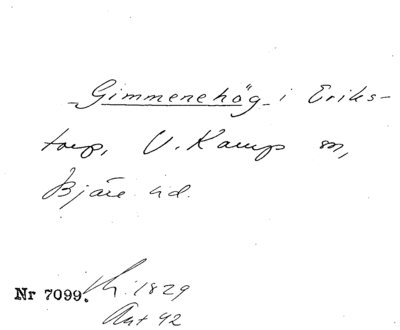 Gimmenehög i Eriks-
torp, V. Karup sn,
Bjäre hd.
Nr 7099. 1829
Ant 42